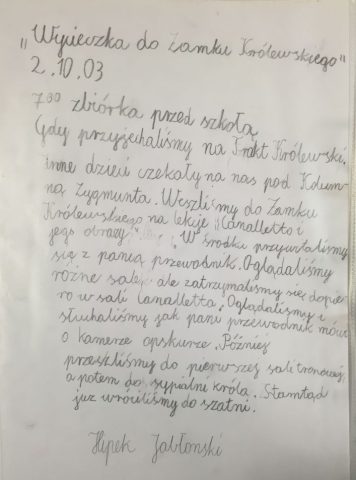 „Wycieczka do Zamku Królewskiego”
2.10.03
7⁰⁰ zbiórka przed szkołą
Gdy przyjechaliśmy na Trakt Królewski.
inne dzieci czekały na nas pod Kolum-
ną Zygmunta. Weszliśmy do Zamku
Królewskiego na lekcję „Canalletto i
jego obrazy”. W środku przywitaliśmy
się z panią przewodnik. Oglądaliśmy
różne sale, ale zatrzymaliśmy się dopie-
ro w sali Canaletta. Oglądaliśmy i
słuchaliśmy jak pani przewodnik mówi
o kamerze opskurze. Później
przeszliśmy do pierwszej sali tronowej,
a potem do sypialni króla. Stamtąd
już wróciliśmy do szatni.
Hipek Jabłonski